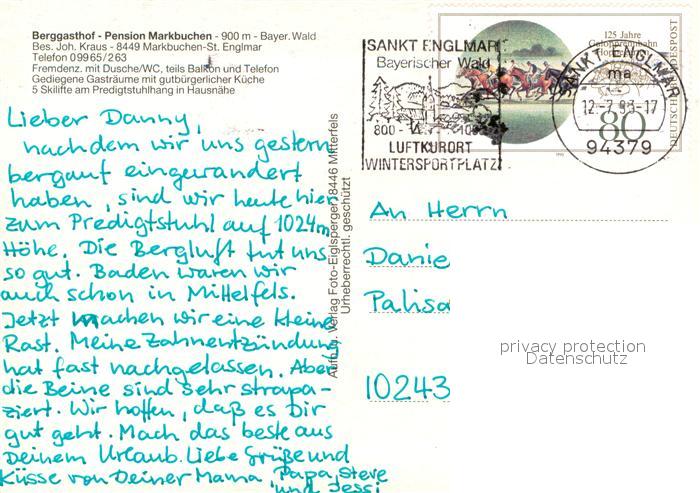 Berggasthof - Pension Markbuchen - 900 m - Bayer. Wald
Bes. Joh. Kraus - 8449 Markbuchen-St. Englmar
Telefon 09965/263
Fremdenz. mit Dusche/WC, teils Balkon und Telefon
Gediegene Gasträume mit gutbürgerlicher Küche
5 Skilifte am Predigtstuhlhang in Hausnähe
Lieber Danny,
nachdem wir uns gestern
bergauf eingewandert
haben, sind wir heute hier
zum Predigtstuhl auf 1024m
Höhe. Die Bergluft tut uns
so gut. Baden waren wir
auch schon in Mittelfels.
Jetzt machen wir eine kleine
Rast. Meine Zahnentzündung
hat fast nachgelassen. Aber
die Beine sind sehr strapa-
ziert. Wir hoffen, daß es Dir
gut geht. Mach das beste aus
Deinem Urlaub. Liebe Grüße und
Küsse von Deiner Mama, Papa, Steve
und Jessi
Aufn. u. Verlag Foto-Eiglsperger, 8446 Mitterfels
Urheberrechtl. geschützt
SANKT ENGLMAR
Bayerischer Wald
800 - 10
LUFTKURORT
WINTERSPORTPLATZ
125 Jahre
Galopprennbahn
DEUTSCHE BUNDESPOST
80
SANKT ENGLMAR
ma
12.-7.93-17
94379
An Herrn
Danie
Palisa
10243
privacy protection
Datenschutz